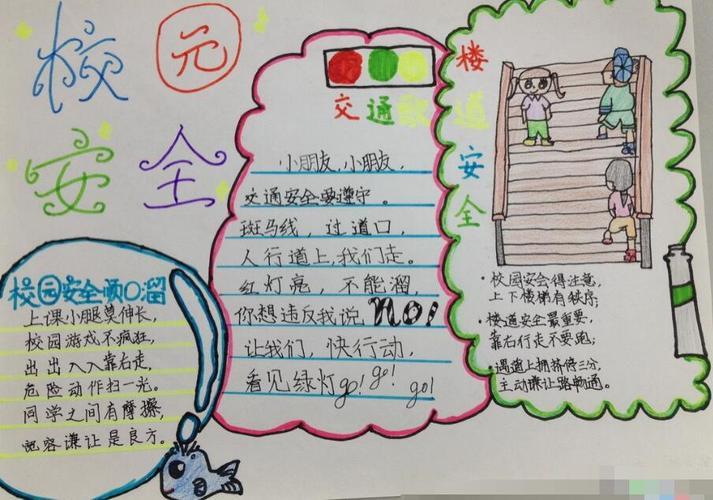 校园
安全
校园安全顺口溜
上课小腿莫伸长,
校园游戏不疯狂,
出出入入靠右走,
危险动作扫一光。
同学之间有摩擦,
宽容谦让是良方。
交通歌
小朋友,小朋友,
交通安全要遵守。
斑马线,过道口,
人行道上,我们走。
红灯亮,不能溜,
你想违反我说 NO!
让我们,快行动,
看见绿灯go! go! go!
楼道安全
· 校园安会得注意,
上下楼梯有秩序;
· 楼道安全最重要,
靠右行走不要跑;
· 遇道上拥挤停三分,
主动谦让路畅通。